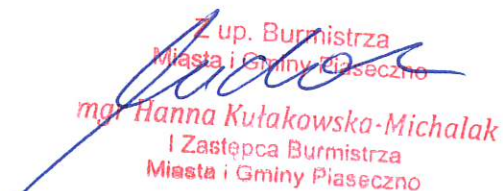 Z up. Burmistrza
Miasta i Gminy Piaseczno
mgr Hanna Kułakowska-Michalak
I Zastępca Burmistrza
Miasta i Gminy Piaseczno